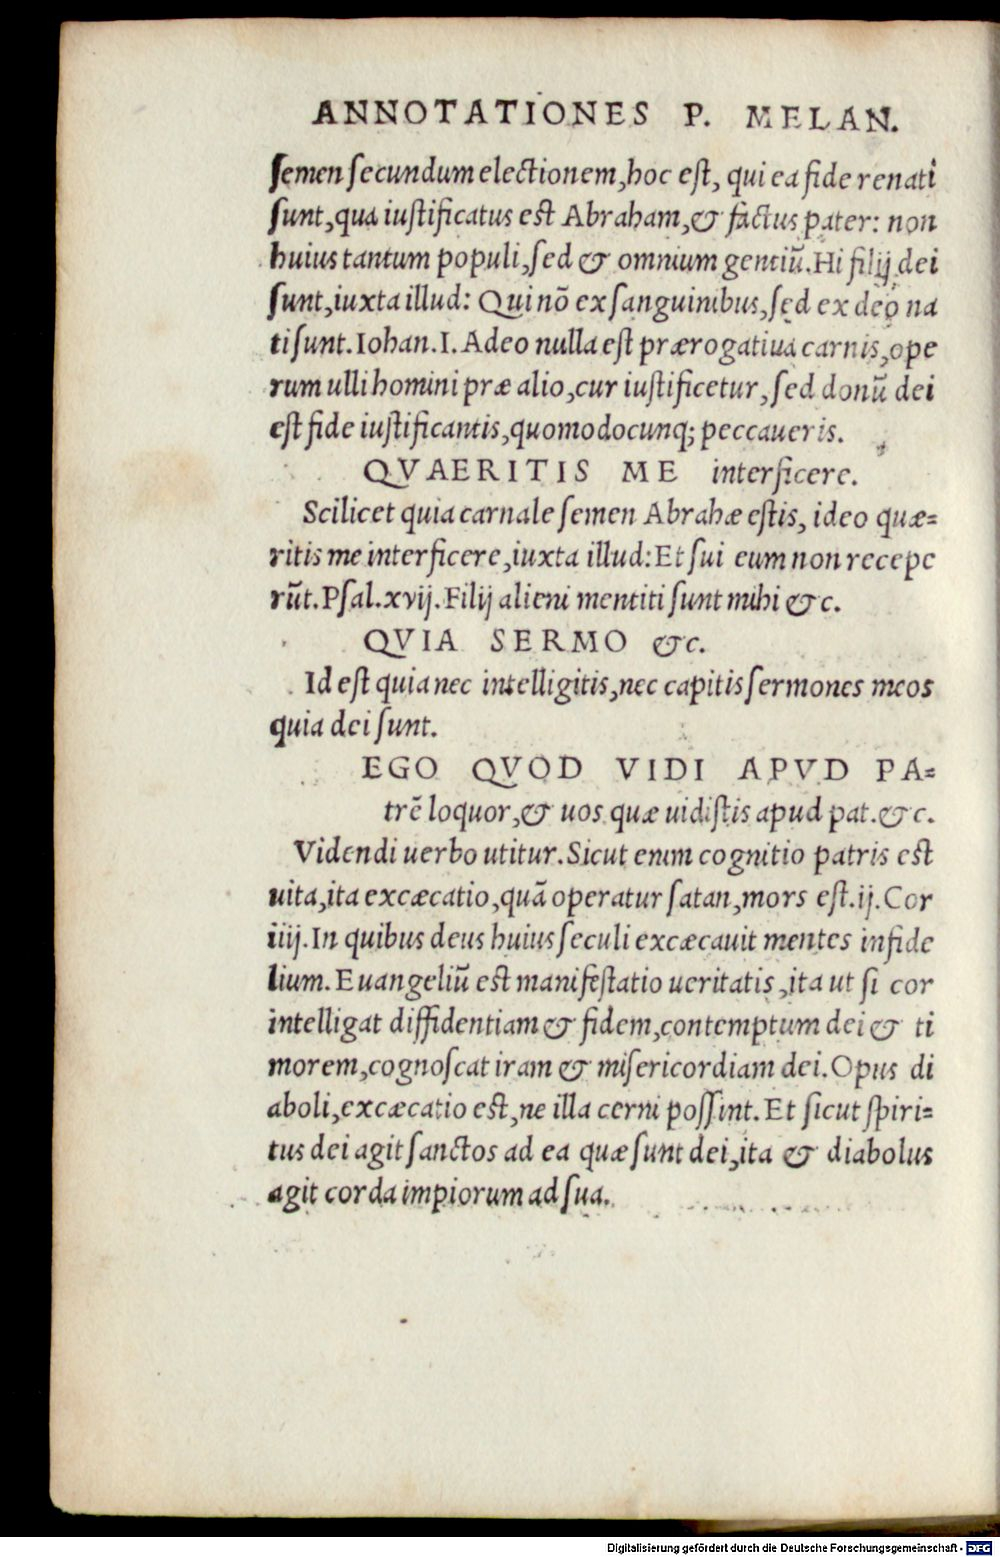 ANNOTATIONES P. MELAN.
semen secundum electionem, hoc est, qui ea fide renati
sunt, qua iustificatus est Abraham, & factus pater: non
huius tantum populi, sed & omnium gentiū. Hi filij dei
sunt, iuxta illud: Qui nō ex sanguinibus, sed ex deo na
ti sunt. Iohan. I. Adeo nulla est prærogatiua carnis, ope
rum ulli homini præ alio, cur iustificetur, sed donū dei
est fide iustificantis, quomodocunq; peccaueris.
QVAERITIS ME interficere.
Scilicet quia carnale semen Abrahæ estis, ideo quæ=
ritis me interficere, iuxta illud: Et sui eum non recepe
rūt. Psal. xvij. Filij alieni mentiti sunt mihi &c.
QVIA SERMO &c.
Id est quia nec intelligitis, nec capitis sermones meos
quia dei sunt.
EGO QVOD VIDI APVD PA=
trē loquor, & uos quæ uidistis apud pat. &c.
Videndi uerbo utitur. Sicut enim cognitio patris est
uita, ita excæcatio, quā operatur satan, mors est. ij. Cor
iiij. In quibus deus huius seculi excæcauit mentes infide
lium. Euangeliū est manifestatio ueritatis, ita ut si cor
intelligat diffidentiam & fidem, contemptum dei & ti
morem, cognoscat iram & misericordiam dei. Opus di
aboli, excæcatio est, ne illa cerni possint. Et sicut spiri=
tus dei agit sanctos ad ea quæ sunt dei, ita & diabolus
agit corda impiorum ad sua.
Digitalisierung gefördert durch die Deutsche Forschungsgemeinschaft - DFG